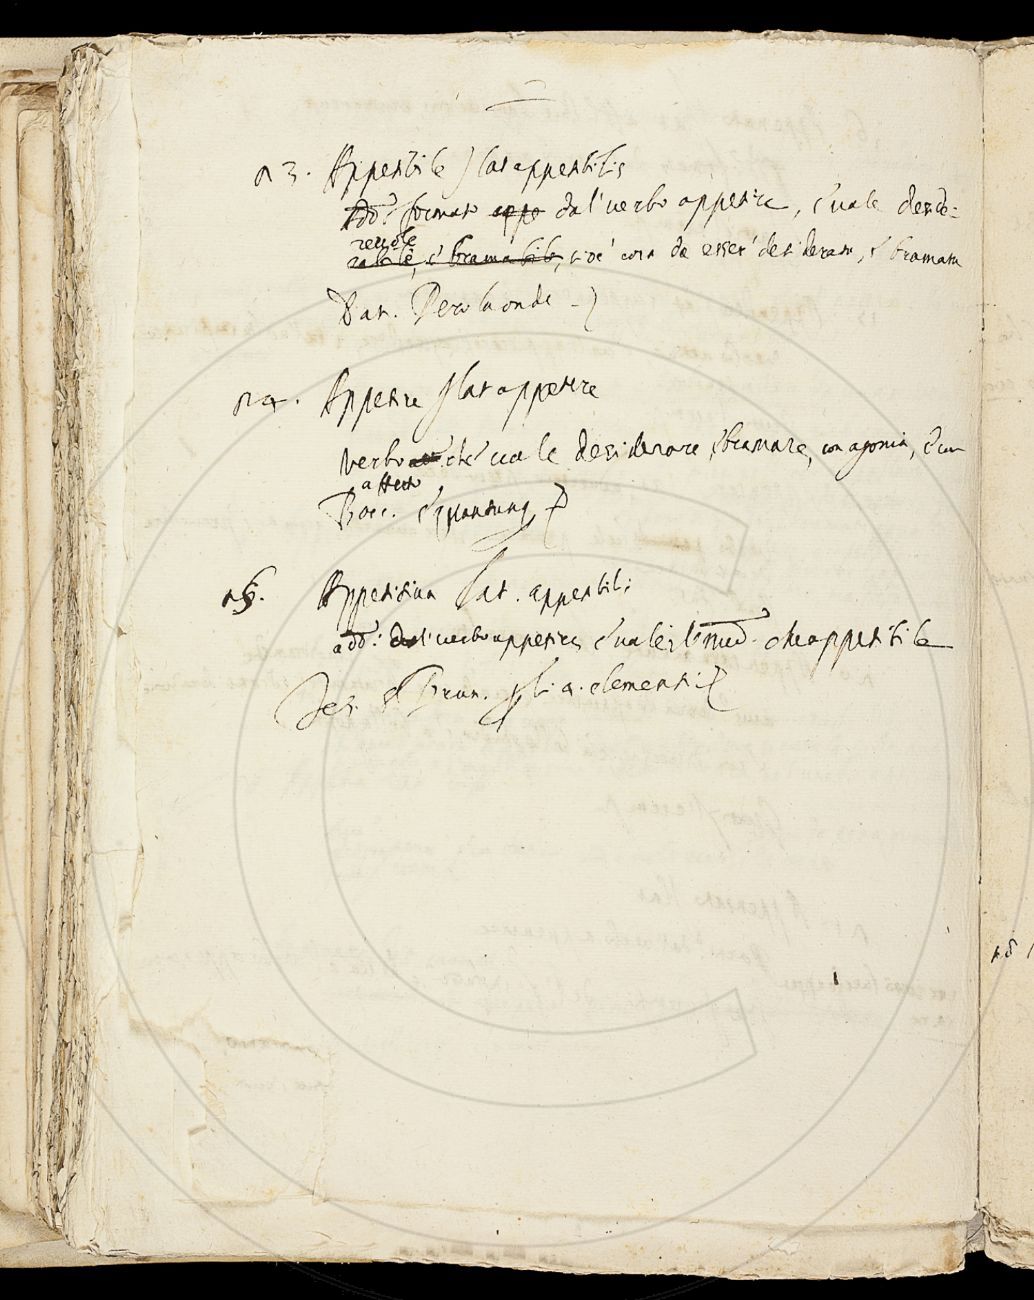 n 3. Appetibile lat appetibilis
Add: formato appe dal' verbo appetire, e' vale deside:
revole
rabile, e' bramabile, cioè cosa da esser' desiderata, e' bramata
Dan.
n 4. Appetire lat appetere
Verbo che' vale desiderare, e' bramare, con agonia, e' con
affetto
Bocc.
n 5. Appetitiva lat. appetibili
add: dal' verbo appetire, e' vale il med. che appetibile
Tes. Brun. elementi
n 8